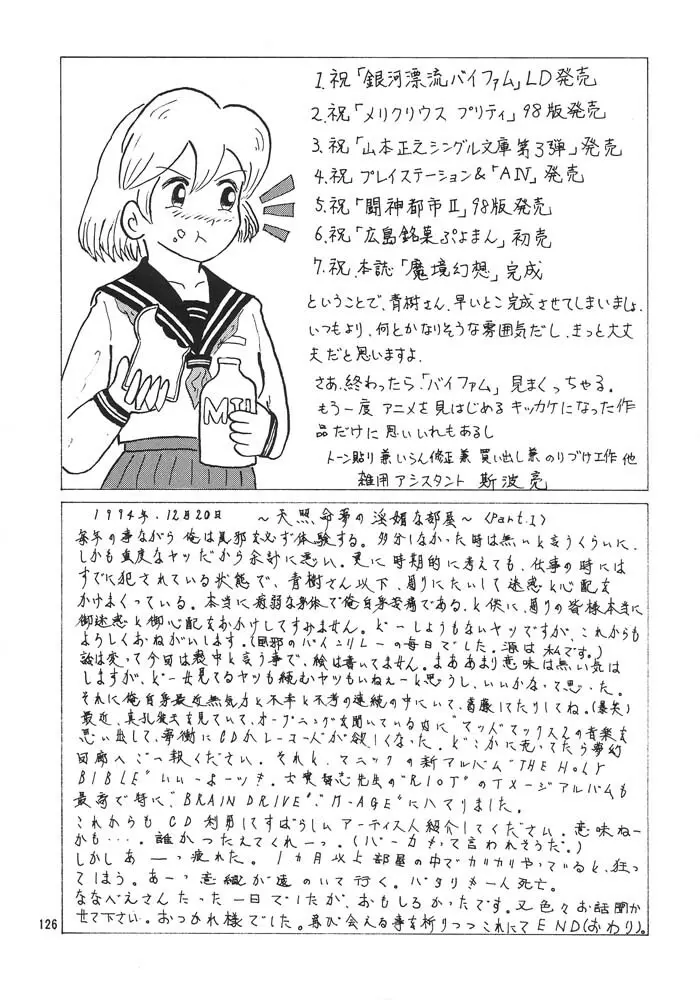 1.祝「銀河漂流バイファム」LD発売
2.祝「メリクリウス プリティ」98版発売
3.祝「山本正之シングル文庫第3弾」発売
4.祝 プレイステーション&「AIV」発売
5.祝「闘神都市II」98版発売
6.祝「広島銘菓ぷよまん」初売
7.祝.本誌「魔境幻想」完成
ということで、青樹さん、早いとこ完成させてしまいましょ。
いつもより、何とかなりそうな雰囲気だし、きっと大丈
夫だと思いますよ.
さあ、終わったら、「バイファム」見まくっちゃる。
もう一度 アニメを見はじめる キッカケになった作
品だけに思いいれもあるし
トーン貼り兼いらん修正兼 買い出し兼のりづけ工作他
雑用アシスタント 斯波亮
MIL
1994年.12月20日 ~天照命夢の淫媚な部屋~ <Part.1>
毎年の事ながら俺は風邪を必ず体験する。多分しなかった時は無いと言うくらいに、
しかも重度なヤツだから余計に悪い。更に時期的に考えても、仕事の時には
すでに犯されている状態で、青樹さん以下、周りにたいして迷惑と心配を
かけまくっている。本当に病弱な身体で俺自身苦痛である、と供に、周りの皆様本当に
御迷惑と御心配をおかけしてすみません。どーしようもないヤツですが、これからも
よろしくおねがいします。(風邪のバイキンリレーの毎日でした。源は私です。)
話は変って今回は喪中と言う事で、絵は書いてません。まああまり意味は無い気は
しますが、どーせ見るヤツも読むヤツもいねぇーと思うし、いいかなって思った。
それに俺自身最近無気力と不幸と不考の連続の中にいて、葛藤してたりしてね。(爆笑)
最近、真孔雀王を見ていて、オープニングを聞いている内に"マッドマックス2の音楽を
思い出して、夢衝にCDかレコード人が欲しくなった。どこかに売ってたら夢幻
回廊へご一報ください。それと、マニックの新アルバム"THE HOLY
BIBLE"いいっよーッ!。士貴智志先生の"RIOT"のイメージアルバムも
最高で特に"BRAIN DRIVE"、"M-AGE"にハマりました。
これからもCD利用してすばらしいアーティスト人紹介してください。意味ねー
かも…。誰かつたえてくれーっ。(バーカもって言われそうだ。)
しかしあ一っ疲れた。1カ月以上部屋の中でカリカリやっていると、狂っ
てしまう。あーっ意識が遠のいて行く。バタリ!一人死亡。
ななべえさんたった一日でしたが、おもしろかったです。又色々お話聞か
せて下さい。おつかれ様でした。再び会える事を祈りつつこれにてEND(おわり)。
126